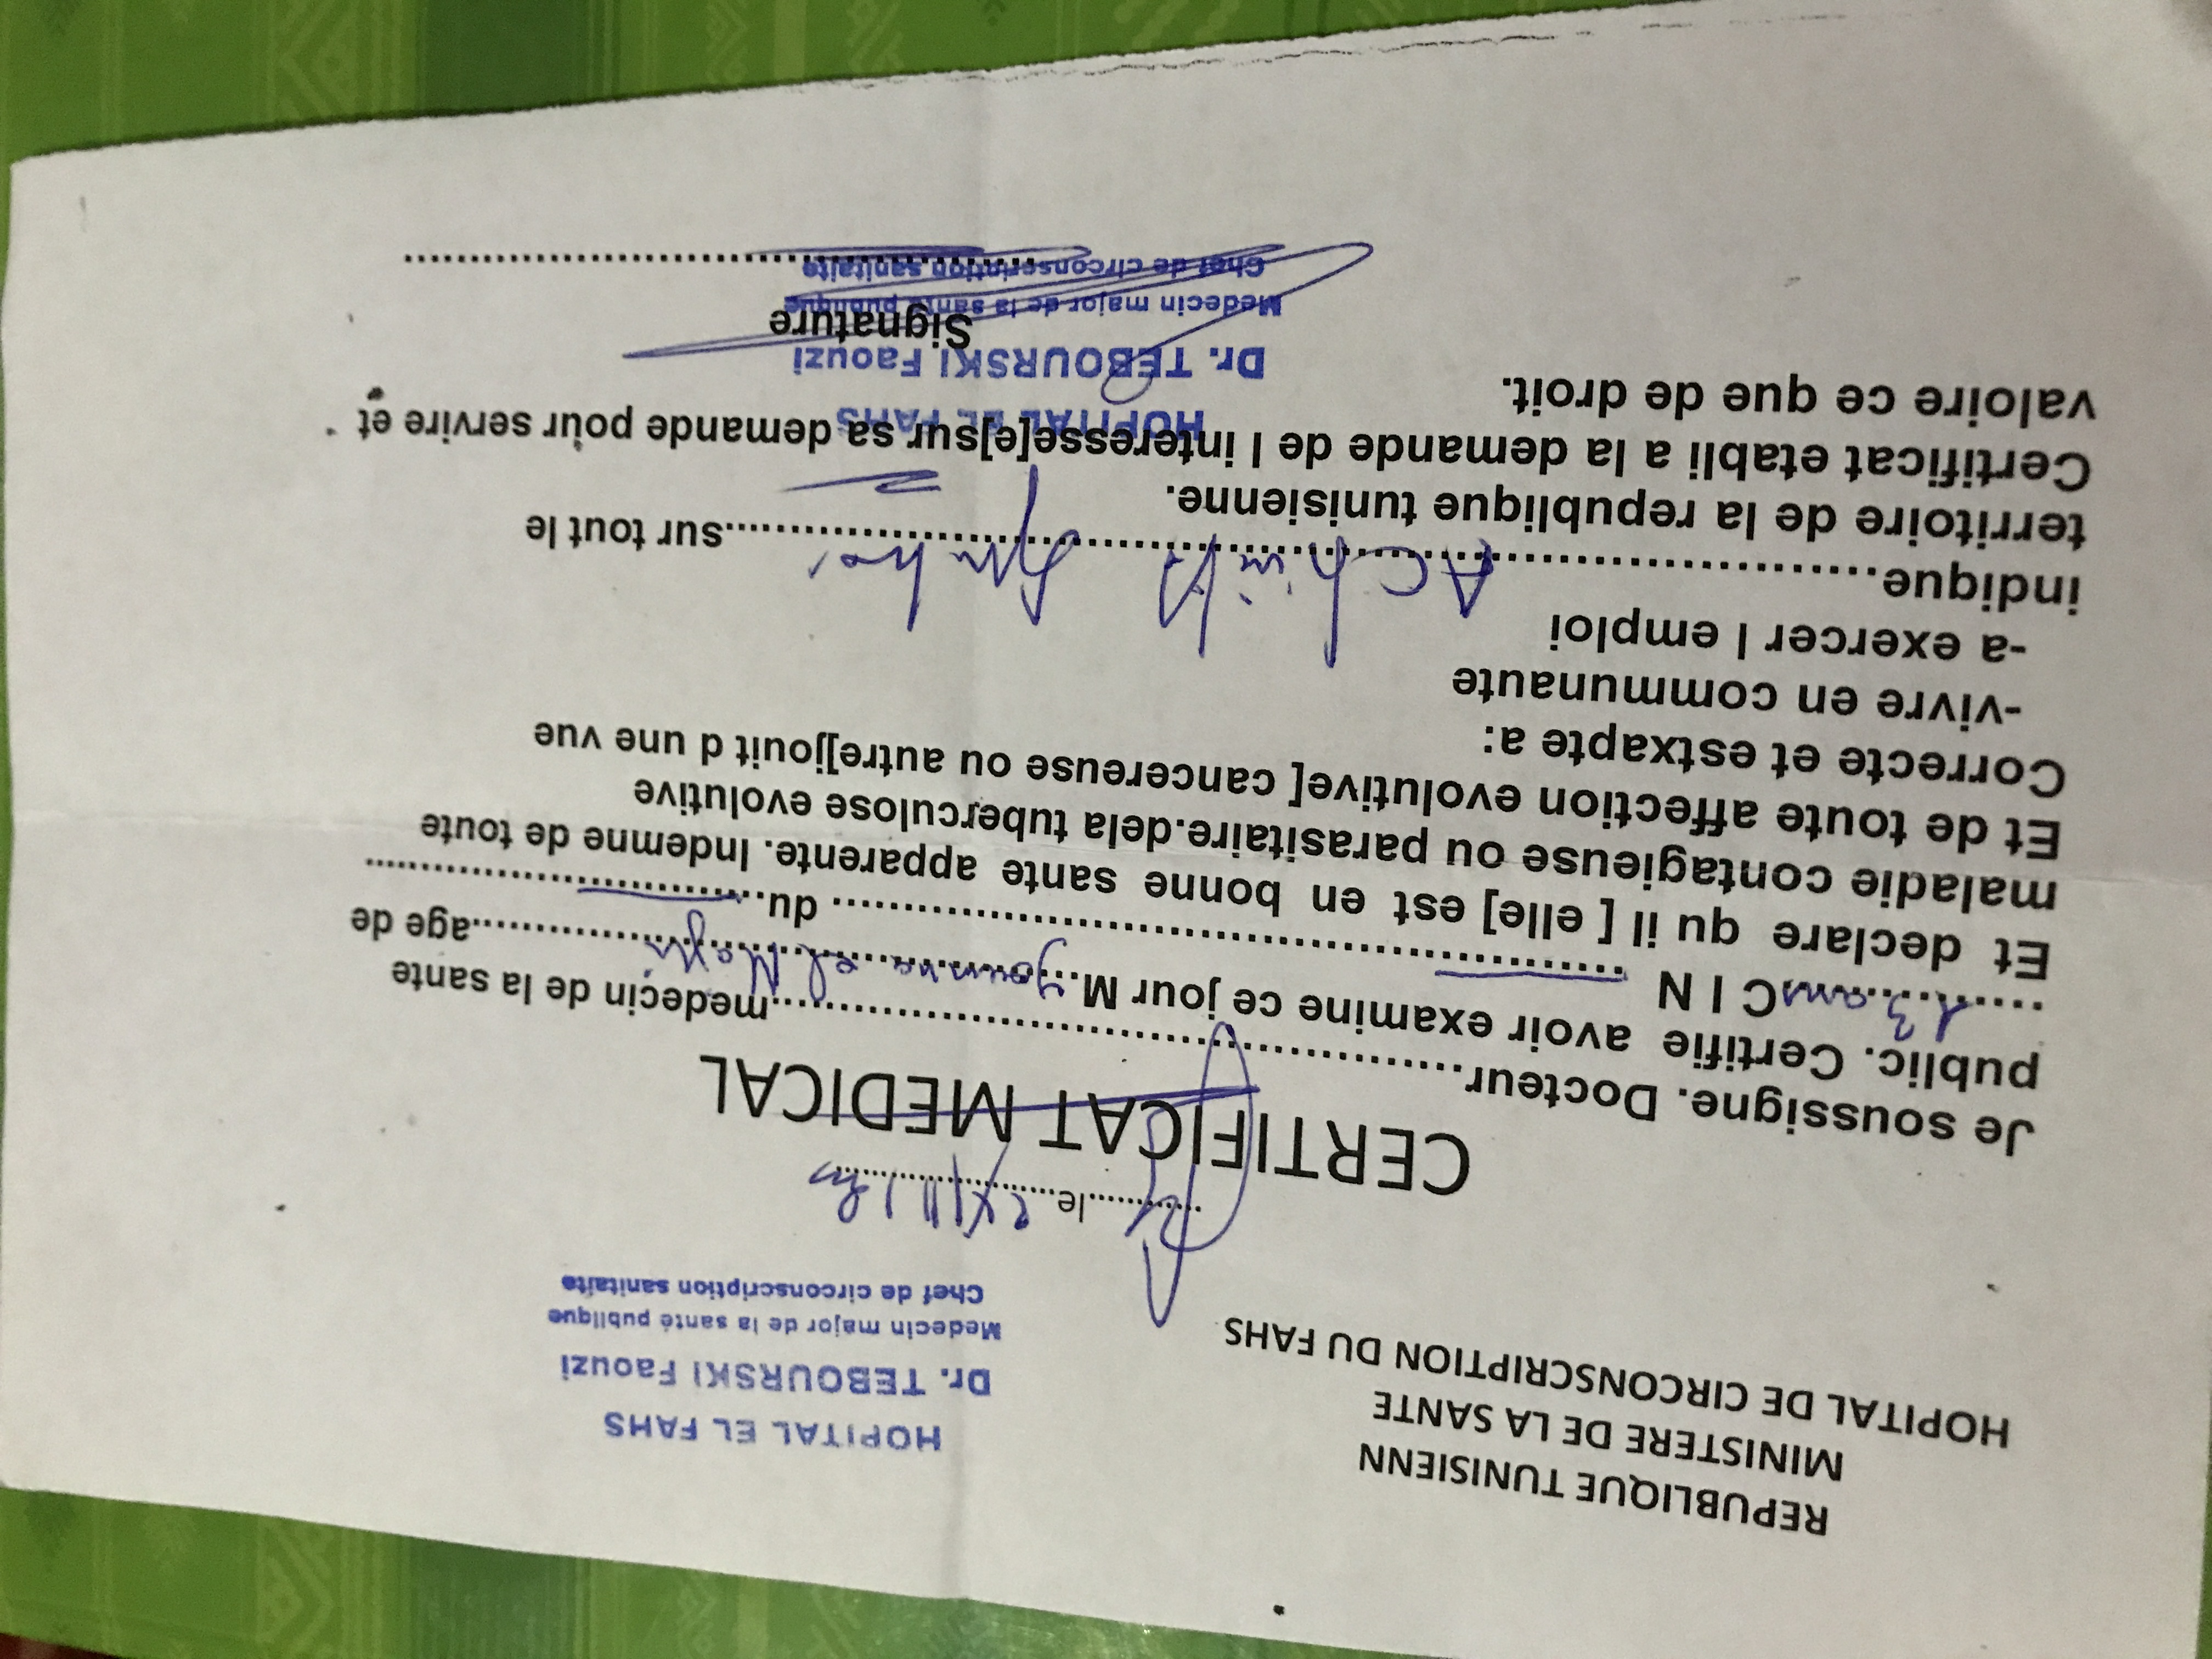 REPUBLIQUE TUNISIENN
MINISTERE DE LA SANTE
HOPITAL DE CIRCONSCRIPTION DU FAHS
HOPITAL EL FAHS
Dr. TEBOURSKI Faouzi
Medecin major de la santé publique
Chef de circonscription sanitaite
..........le..........................
CERTIFICAT MEDICAL
Je soussigne. Docteur..................................................medecin de la sante
public. Certifie avoir examine ce jour M...........................................age de
............C I N ............................................................ du........................................
Et declare qu il [ elle] est en bonne sante apparente. Indemne de toute
maladie contagieuse ou parasitaire.dela tuberculose evolutive
Et de toute affection evolutive[ cancereuse ou autre]jouit d une vue
Correcte et estxapte a:
-vivre en communaute
-a exercer l emploi
indique..........................................................................................sur tout le
territoire de la republique tunisienne.
Certificat etabli a la demande de l interesse[e]sur sa demande pour servire et
valoire ce que de droit.
HOPITAL EL FAHS
Dr. TEBOURSKI Faouzi
Signature
Medecin major de la santé publique
Chef de circonscription sanitaite